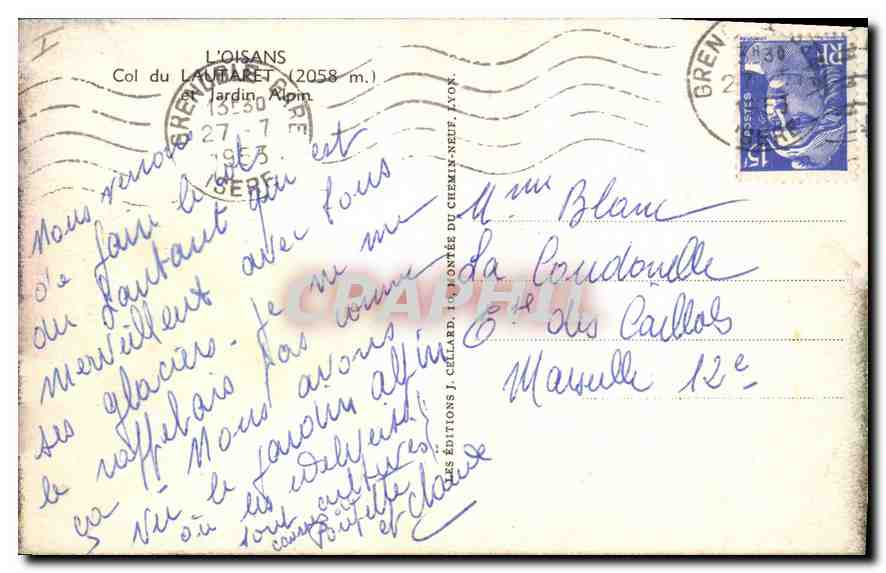 L'OISANS
Col du LAUTARET (2058 m.)
et Jardin Alpin
GRENOBLE GARE
13H30
27 7
1953
ISERE
Nous venons
de faire le col
du Lautaret qui est
merveilleux avec tous
ses glaciers. Je ne me
le rappelais pas comme
ça. Nous avons
vu le jardin alpin
où les edelweiss
sont cultivés
et Claude
LES ÉDITIONS J. CELLARD, 10, MONTÉE DU CHEMIN-NEUF, LYON.
GRENO
30
ISERE
RF
POSTES
15F
Mme Blanc
La Condorelle
Bse des Caillols
Marseille 12e
CPAPHIL